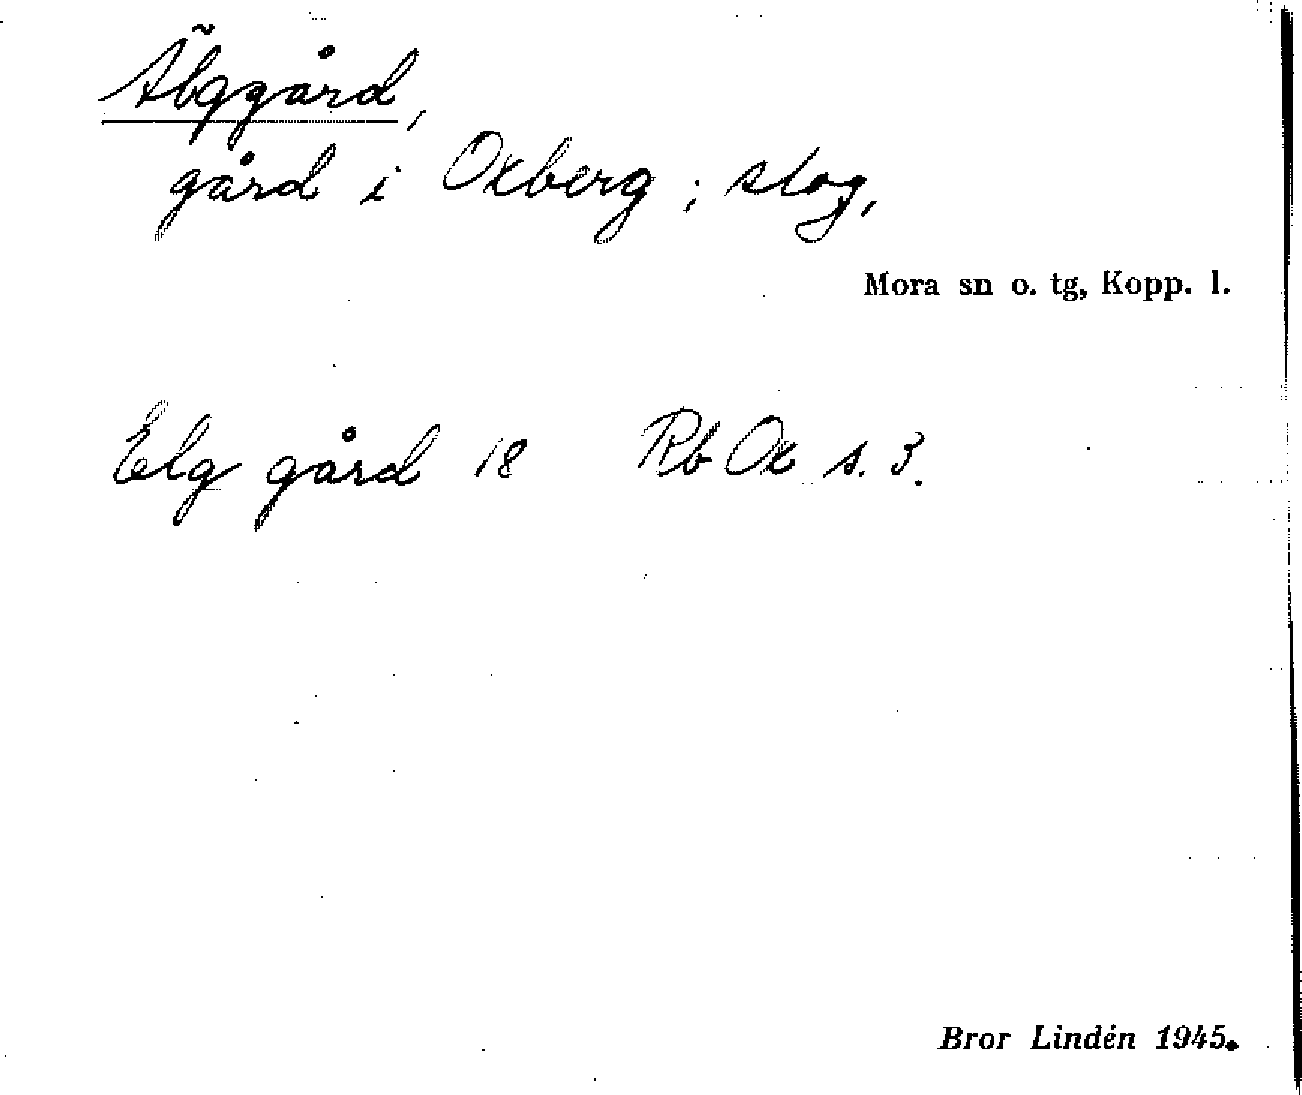 Älggård,
gård i Oxberg; slog,
Mora sn o. tg, Kopp. l.
Elg gård 18 Rb Ox s. 3.
Bror Lindén 1945.